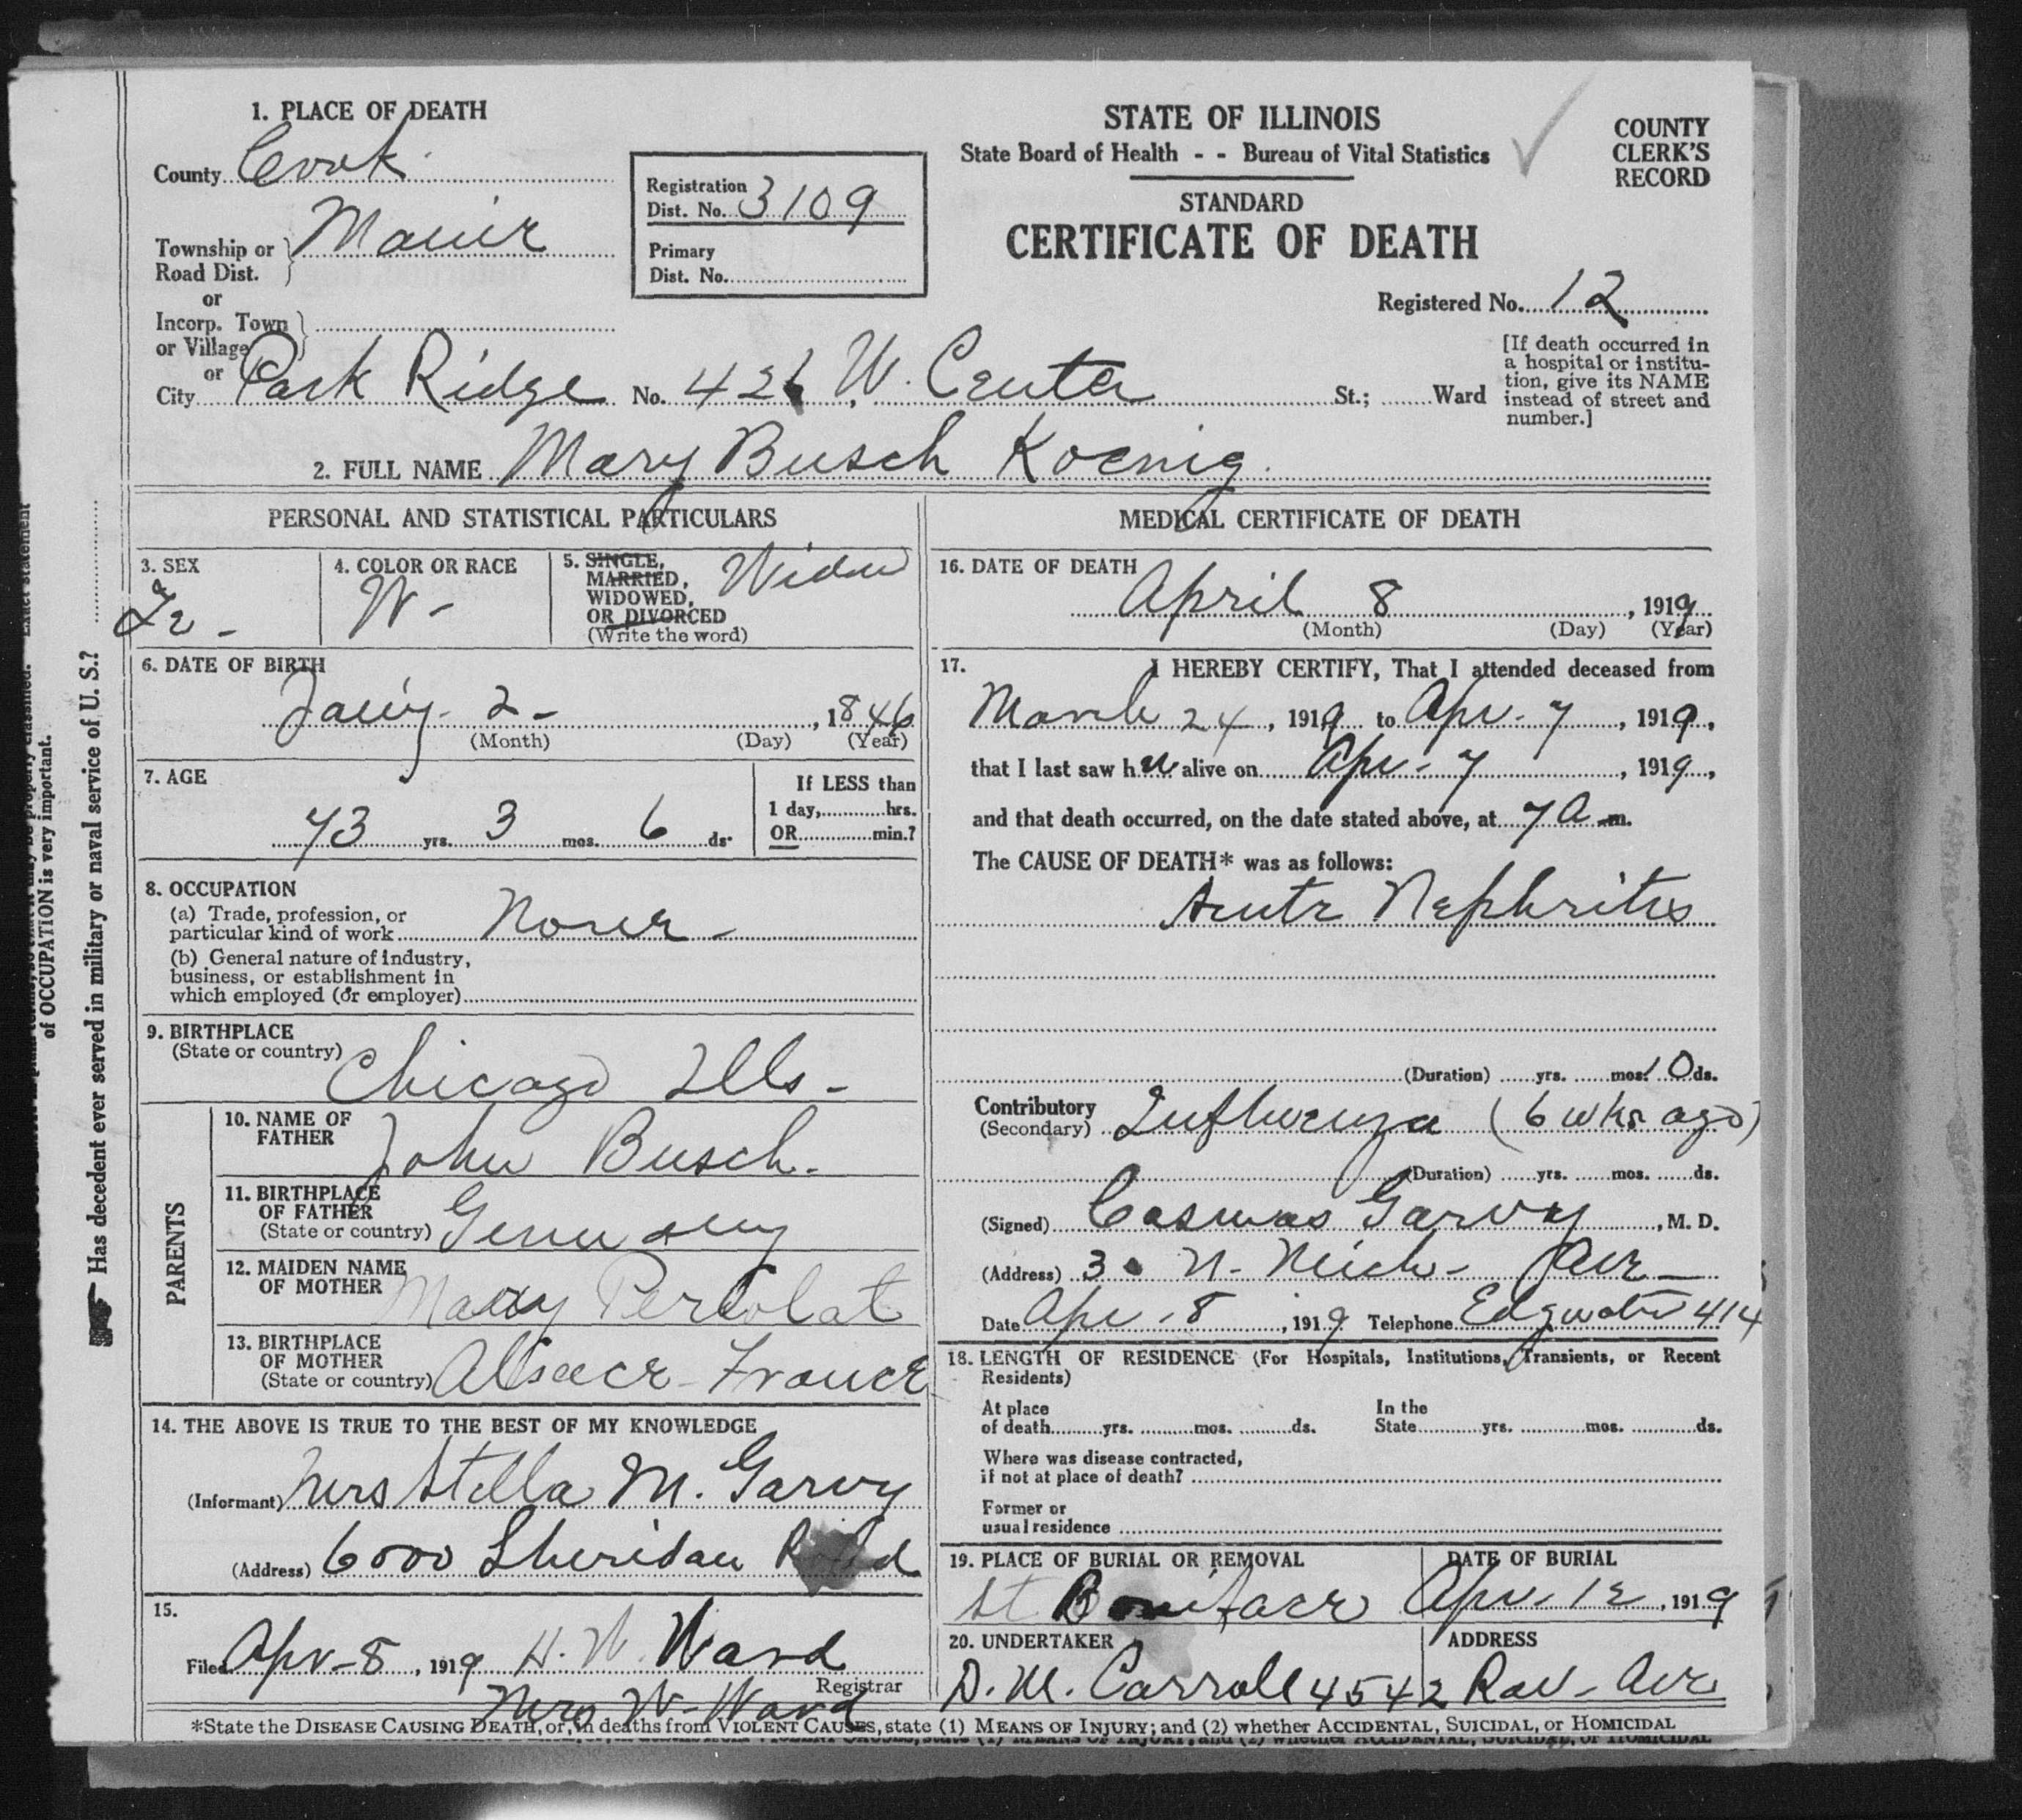 1. PLACE OF DEATH
County Cook
Township or Road Dist. Maine
or
Incorp. Town or Village
or
City Park Ridge No. 421 W. Center St.; Ward
Registration Dist. No. 3109
Primary Dist. No.
STATE OF ILLINOIS
State Board of Health - - Bureau of Vital Statistics
STANDARD
CERTIFICATE OF DEATH
COUNTY
CLERK'S
RECORD
Registered No. 12
[If death occurred in
a hospital or institu-
tion, give its NAME
instead of street and
number.]
2. FULL NAME Mary Busch Koenig.
PERSONAL AND STATISTICAL PARTICULARS
3. SEX Fe -
4. COLOR OR RACE W -
5. SINGLE,
MARRIED,
WIDOWED,
OR DIVORCED
(Write the word)
Widow
6. DATE OF BIRTH
Jany. 2 - , 1846
(Month) (Day) (Year)
7. AGE
73 yrs. 3 mos. 6 ds.
If LESS than
1 day, hrs.
OR min.?
8. OCCUPATION
(a) Trade, profession, or
particular kind of work None -
(b) General nature of industry,
business, or establishment in
which employed (or employer)
9. BIRTHPLACE
(State or country) Chicago Ills -
PARENTS
10. NAME OF
FATHER John Busch.
11. BIRTHPLACE
OF FATHER
(State or country) Germany
12. MAIDEN NAME
OF MOTHER Mary Perlolat
13. BIRTHPLACE
OF MOTHER
(State or country) Alsace - France
14. THE ABOVE IS TRUE TO THE BEST OF MY KNOWLEDGE
(Informant) Mrs Stella M. Garvy
(Address) 6000 Sheridan Road
15.
Filed Apr - 8, 1919 H. W. Ward
Registrar
Mrs W - Ward
MEDICAL CERTIFICATE OF DEATH
16. DATE OF DEATH
April 8, 1919
(Month) (Day) (Year)
17. I HEREBY CERTIFY, That I attended deceased from
March 24, 1919 to Apr. 7, 1919,
that I last saw her alive on Apr. 7, 1919,
and that death occurred, on the date stated above, at 7 A m.
The CAUSE OF DEATH* was as follows:
Acute Nephritis
(Duration) yrs. mos. 10 ds.
Contributory
(Secondary) Influenza (6 wks ago)
(Duration) yrs. mos. ds.
(Signed) Cosmas Garvy, M. D.
(Address) N. Mich - Ave -
Date Apr - 8, 1919 Telephone Edgwater 414
18. LENGTH OF RESIDENCE (For Hospitals, Institutions, Transients, or Recent
Residents)
At place
of death yrs. mos. ds.
In the
State yrs. mos. ds.
Where was disease contracted,
if not at place of death?
Former or
usual residence
19. PLACE OF BURIAL OR REMOVAL
St Boniface
DATE OF BURIAL
Apr. 12, 1919
20. UNDERTAKER
D. M. Carroll
ADDRESS
4542 Rav - Ave
*State the DISEASE CAUSING DEATH, or, in deaths from VIOLENT CAUSES, state (1) MEANS OF INJURY; and (2) whether ACCIDENTAL, SUICIDAL, or HOMICIDAL
Has decedent ever served in military or naval service of U. S.?
of OCCUPATION is very important.
properly classified. Exact statement